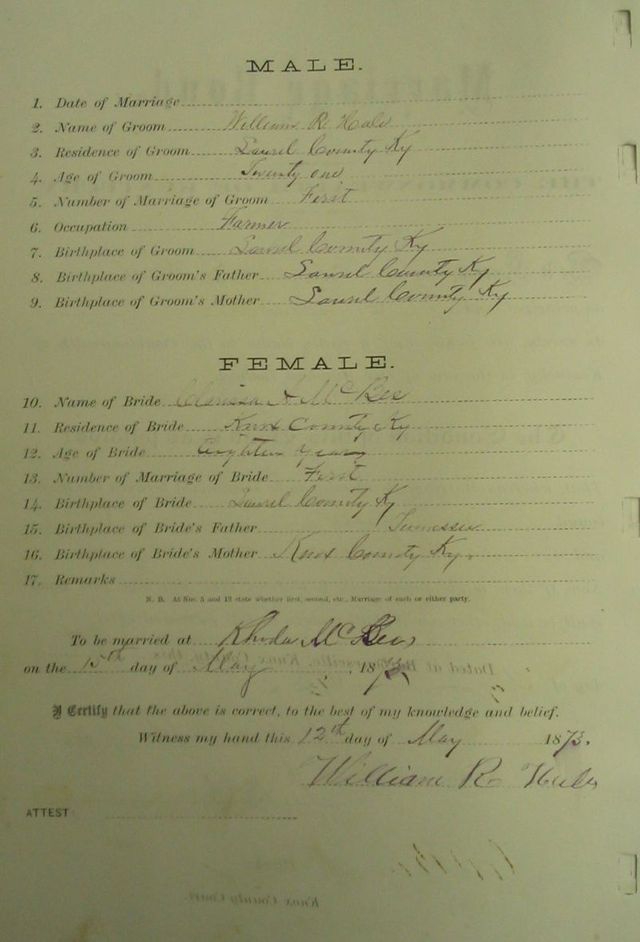 MALE.
1. Date of Marriage
2. Name of Groom William R. Hale
3. Residence of Groom Laurel County Ky
4. Age of Groom Twenty one
5. Number of Marriage of Groom First
6. Occupation Farmer
7. Birthplace of Groom Laurel County Ky
8. Birthplace of Groom's Father Laurel County Ky
9. Birthplace of Groom's Mother Laurel County Ky
FEMALE.
10. Name of Bride A McBee
11. Residence of Bride Knox County Ky
12. Age of Bride Eighteen years
13. Number of Marriage of Bride First
14. Birthplace of Bride Laurel County Ky
15. Birthplace of Bride's Father Tennessee
16. Birthplace of Bride's Mother Knox County Ky.
17. Remarks
N. B. At Nos. 5 and 13 state whether first, second, etc., Marriage of each or either party.
To be married at Rhoda McBees
on the 15th day of May 187
I Certify that the above is correct, to the best of my knowledge and belief.
Witness my hand this 12th day of May 1873.
William R
ATTEST